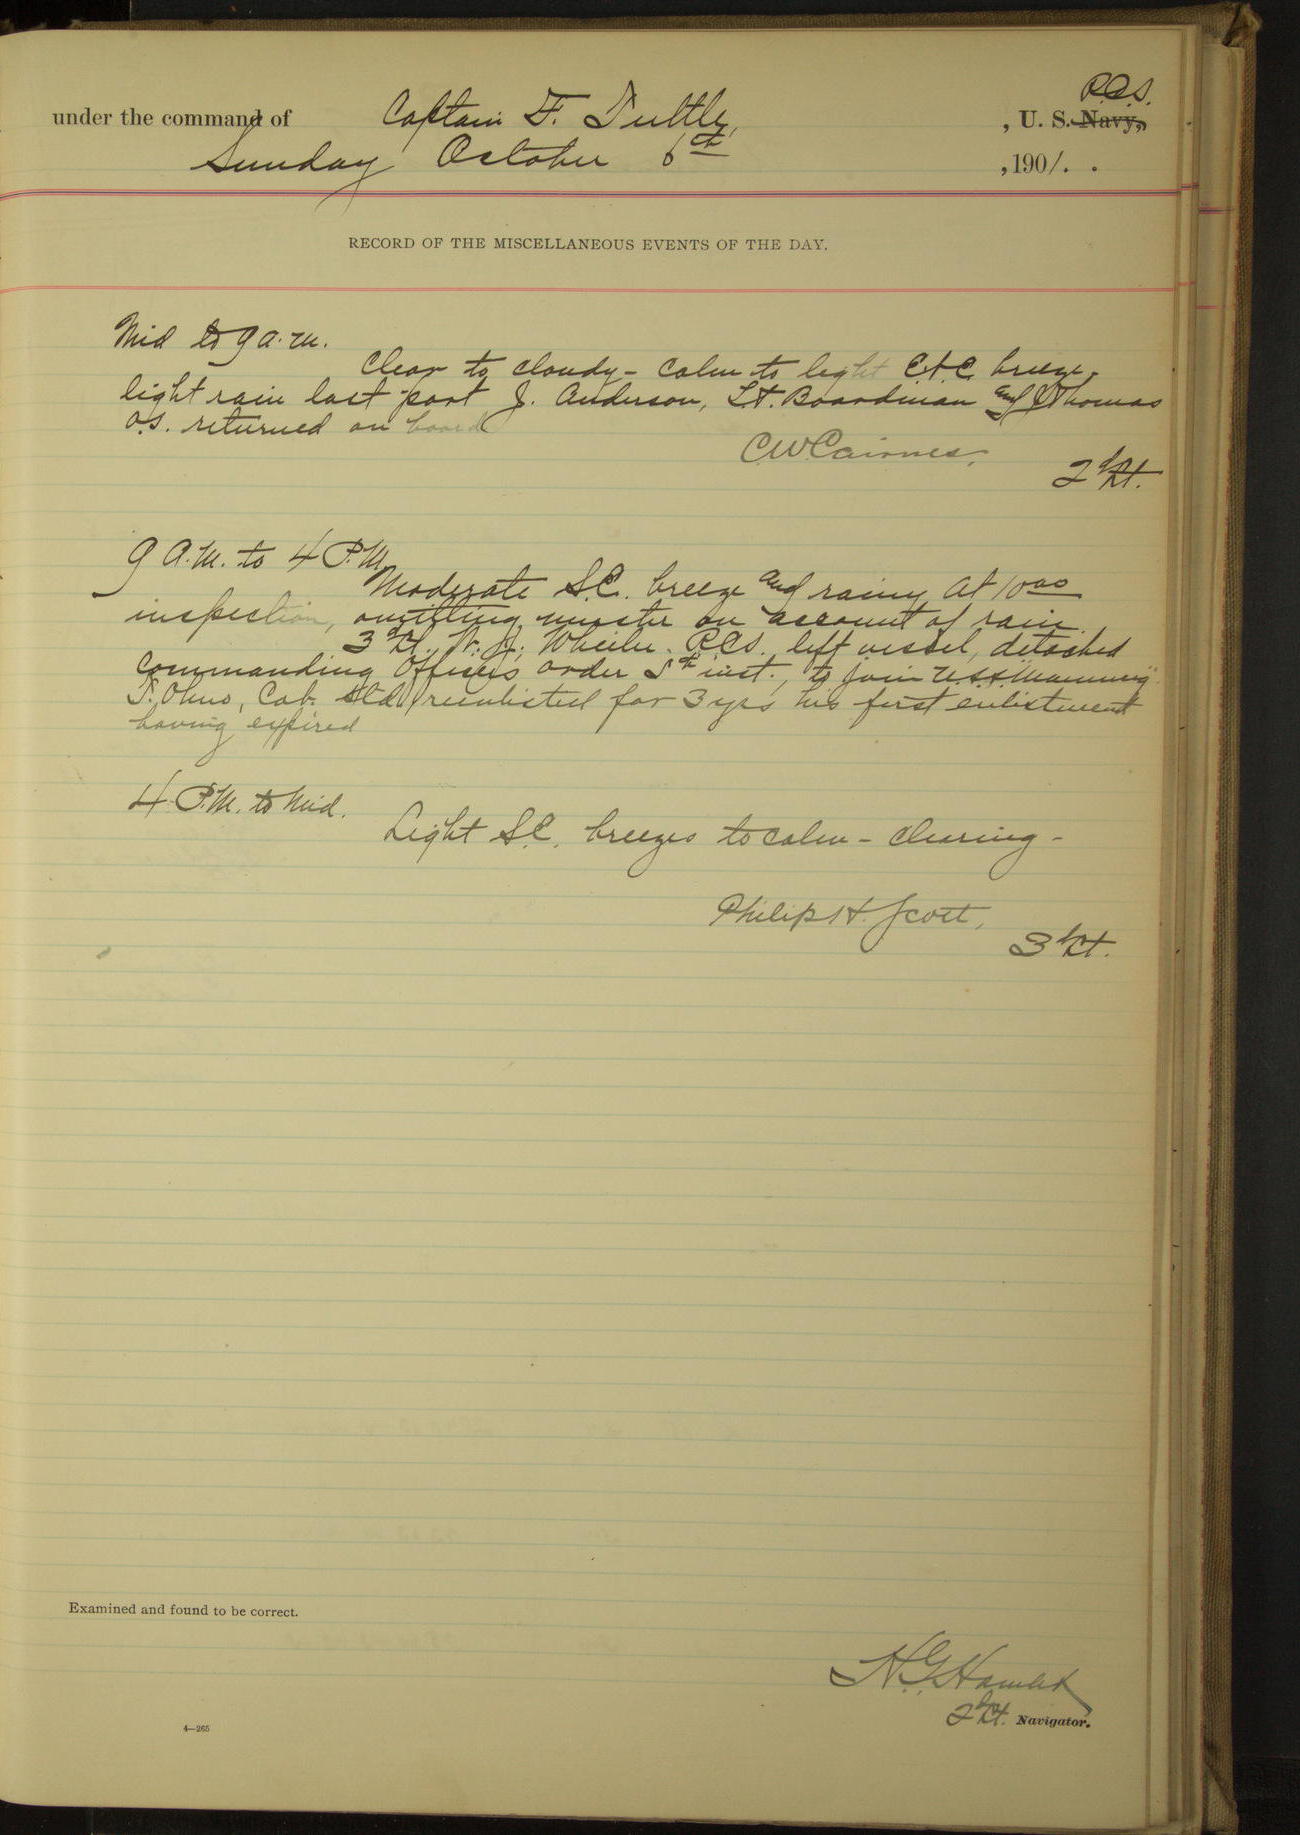 R.C.S.
under the command of Captain F. Tuttle, , U. S. Navy,
Sunday October 6th , 1901. .
RECORD OF THE MISCELLANEOUS EVENTS OF THE DAY.
Mid to 9 a.m.
Clear to cloudy - calm to light breeze.
light rain last part J. Anderson, H. Boardman and J Thomas
O.S. returned on board
C.W. Cairnes,
2d Lt.
9 A.M. to 4 P.M.
Moderate S.E. breeze and rainy At 1000
inspection, omitting muster on account of rain.
3d Lt. Wheeler R.C.S. left vessel, detached
Commanding Officers order 5th inst., to join U.S.S. "Manning"
T. Ohno, Cab. Std. reenlisted for 3 yrs his first enlistment
having expired
4 P.M. to Mid.
Light S.E. breezes to calm - clearing -
Philip H. Scott,
3d Lt.
Examined and found to be correct.
H.G. Hamlet
2d Lt. Navigator.
4—265